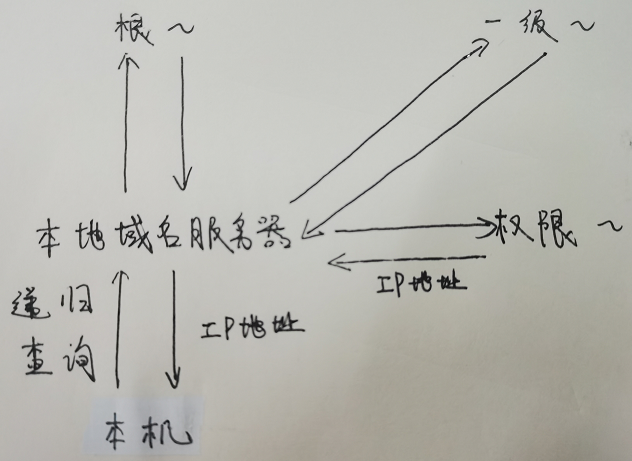 根～
一级～
本地域名服务器
权限～
IP地址
递归
查询
IP地址
本机